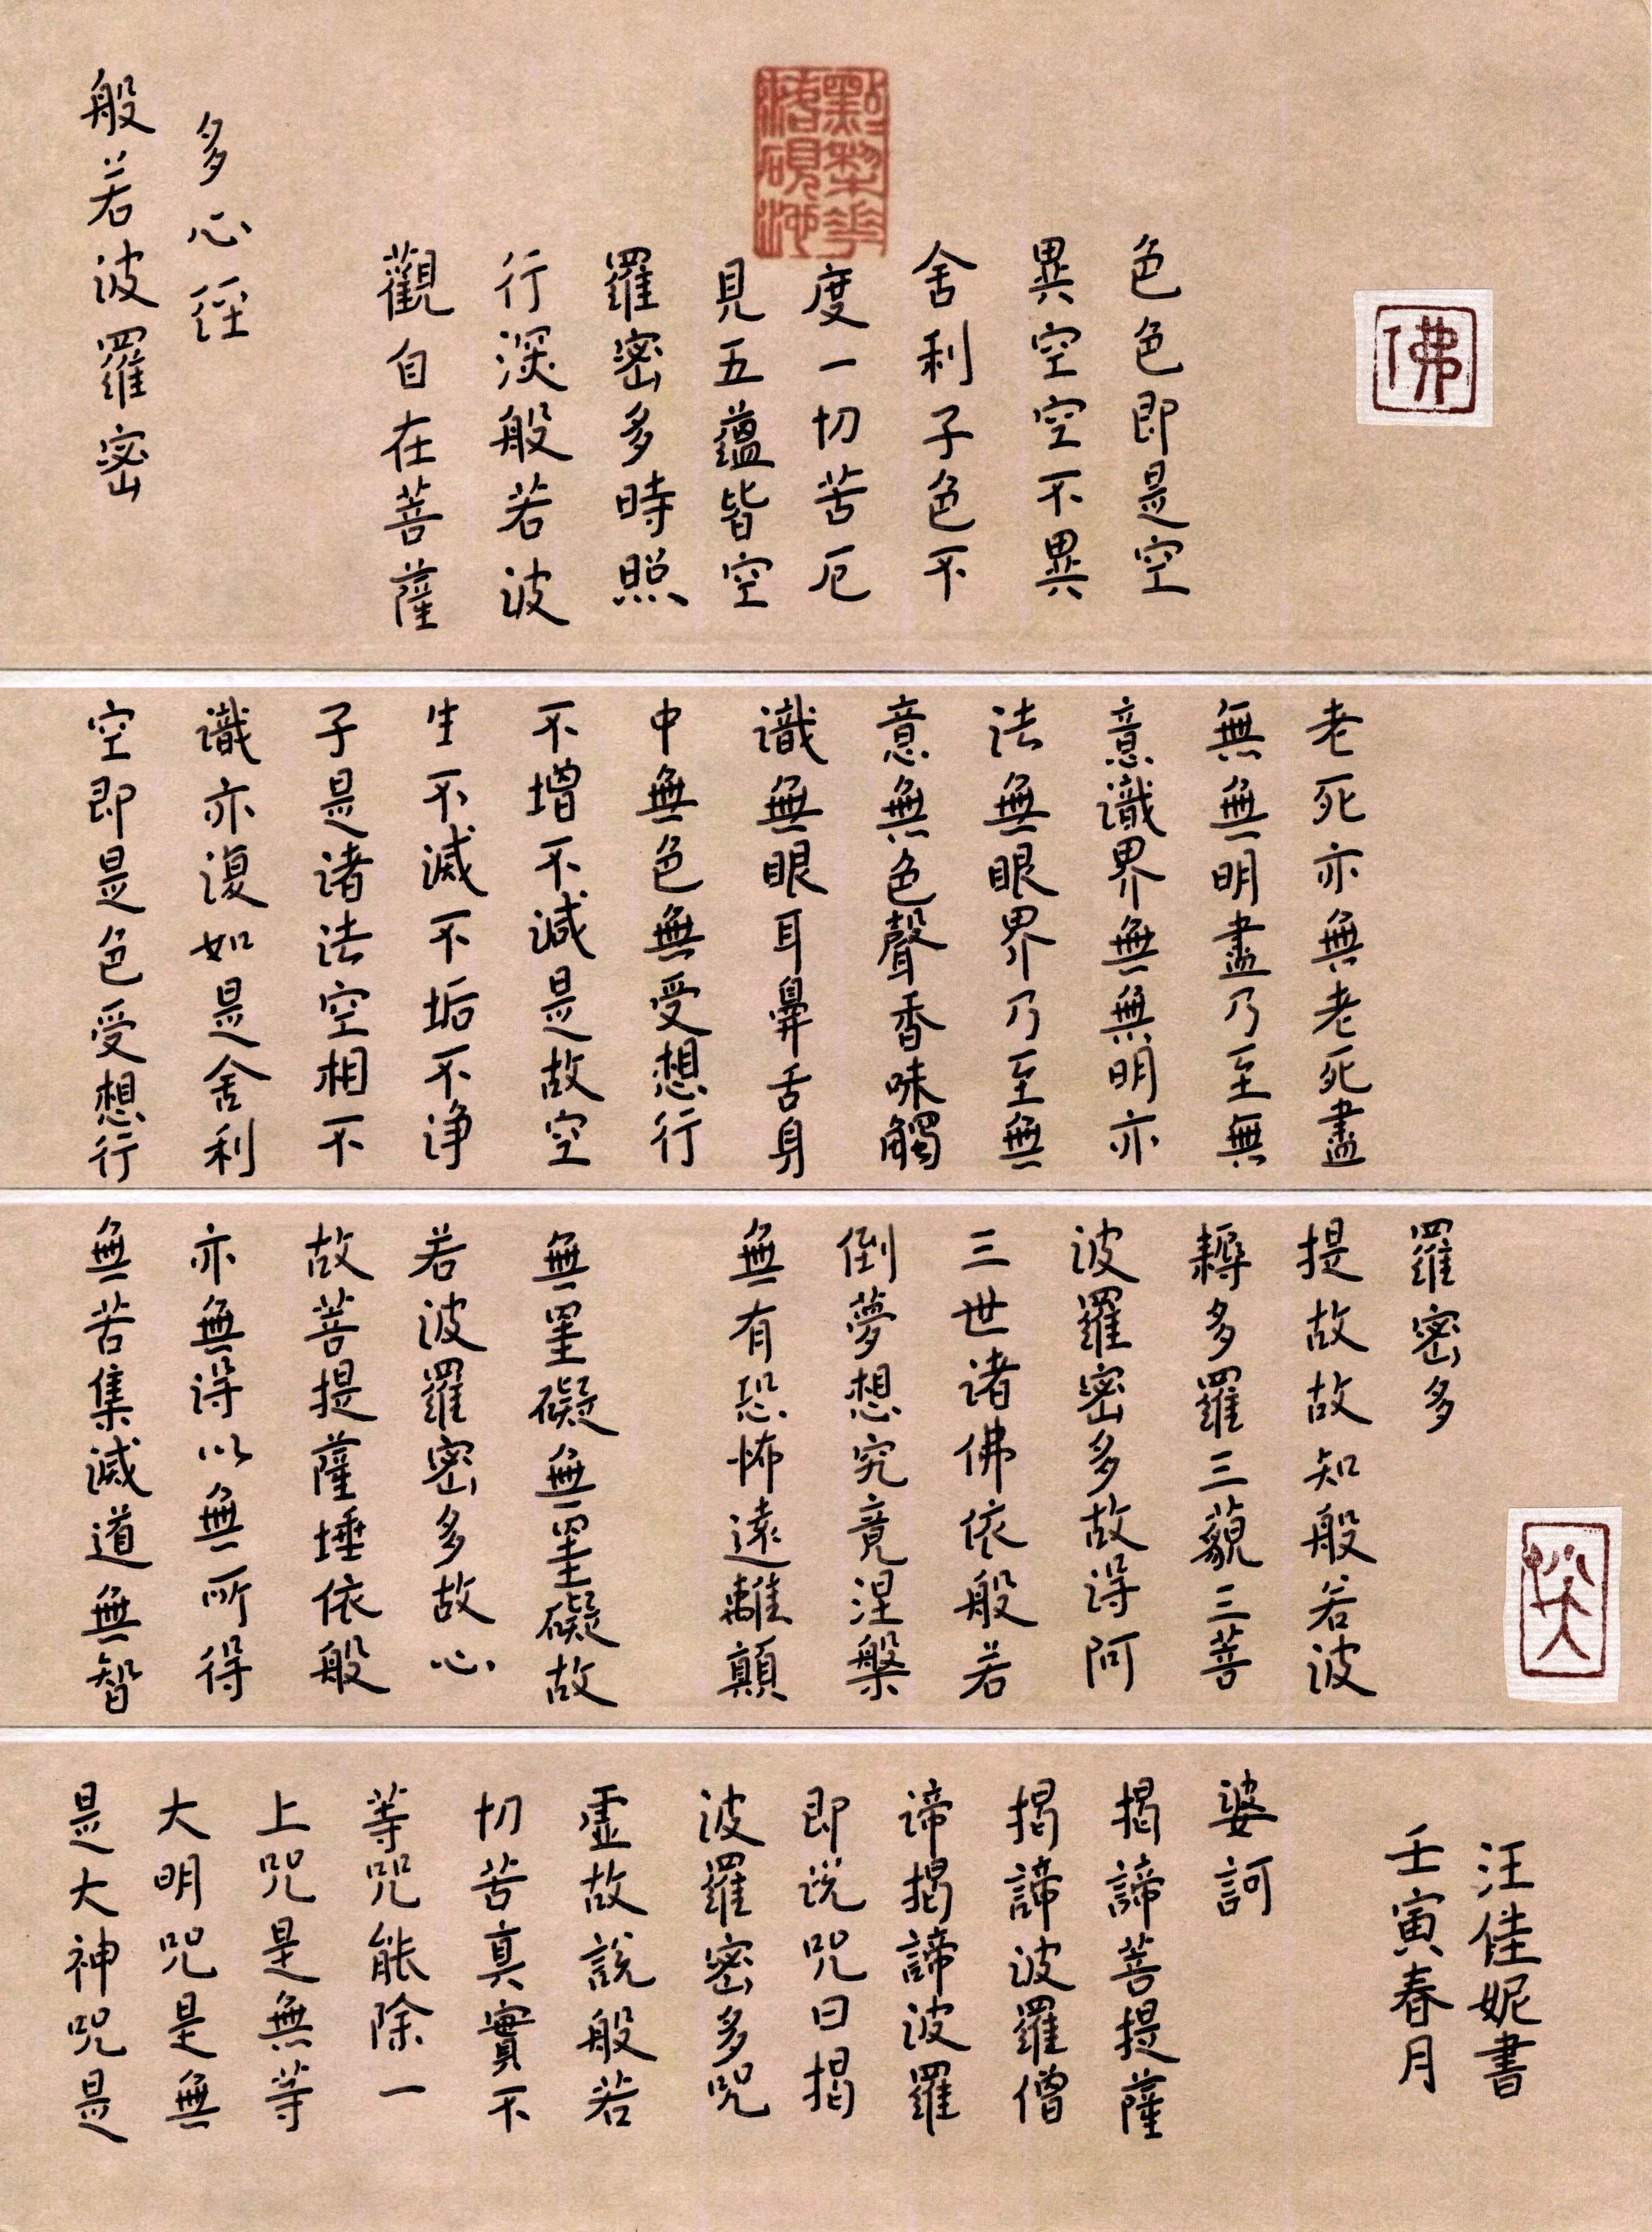 般若波羅密
多心经
觀自在菩薩
行深般若波
羅密多時照
見五蘊皆空
度一切苦厄
舍利子色不
異空空不異
色色即是空
佛
空即是色受想行
識亦復如是舍利
子是诸法空相不
生不滅不垢不诤
不增不減是故空
中無色無受想行
識無眼耳鼻舌身
意無色聲香味觸
法無眼界乃至無
意識界無無明亦
無無明盡乃至無
老死亦無老死盡
無苦集滅道無智
亦無得以無所得
故菩提薩埵依般
若波羅密多故心
無罣礙無罣礙故
無有恐怖遠離顛
倒夢想究竟涅槃
三世诸佛依般若
波羅密多故得阿
耨多羅三藐三菩
提故故知般若波
羅密多
是大神咒是
大明咒是無
上咒是無等
等咒能除一
切苦真實不
虛故說般若
波羅密多咒
即说咒曰揭
諦揭諦波羅
揭諦波羅僧
揭諦菩提薩
婆訶
壬寅春月
汪佳妮書